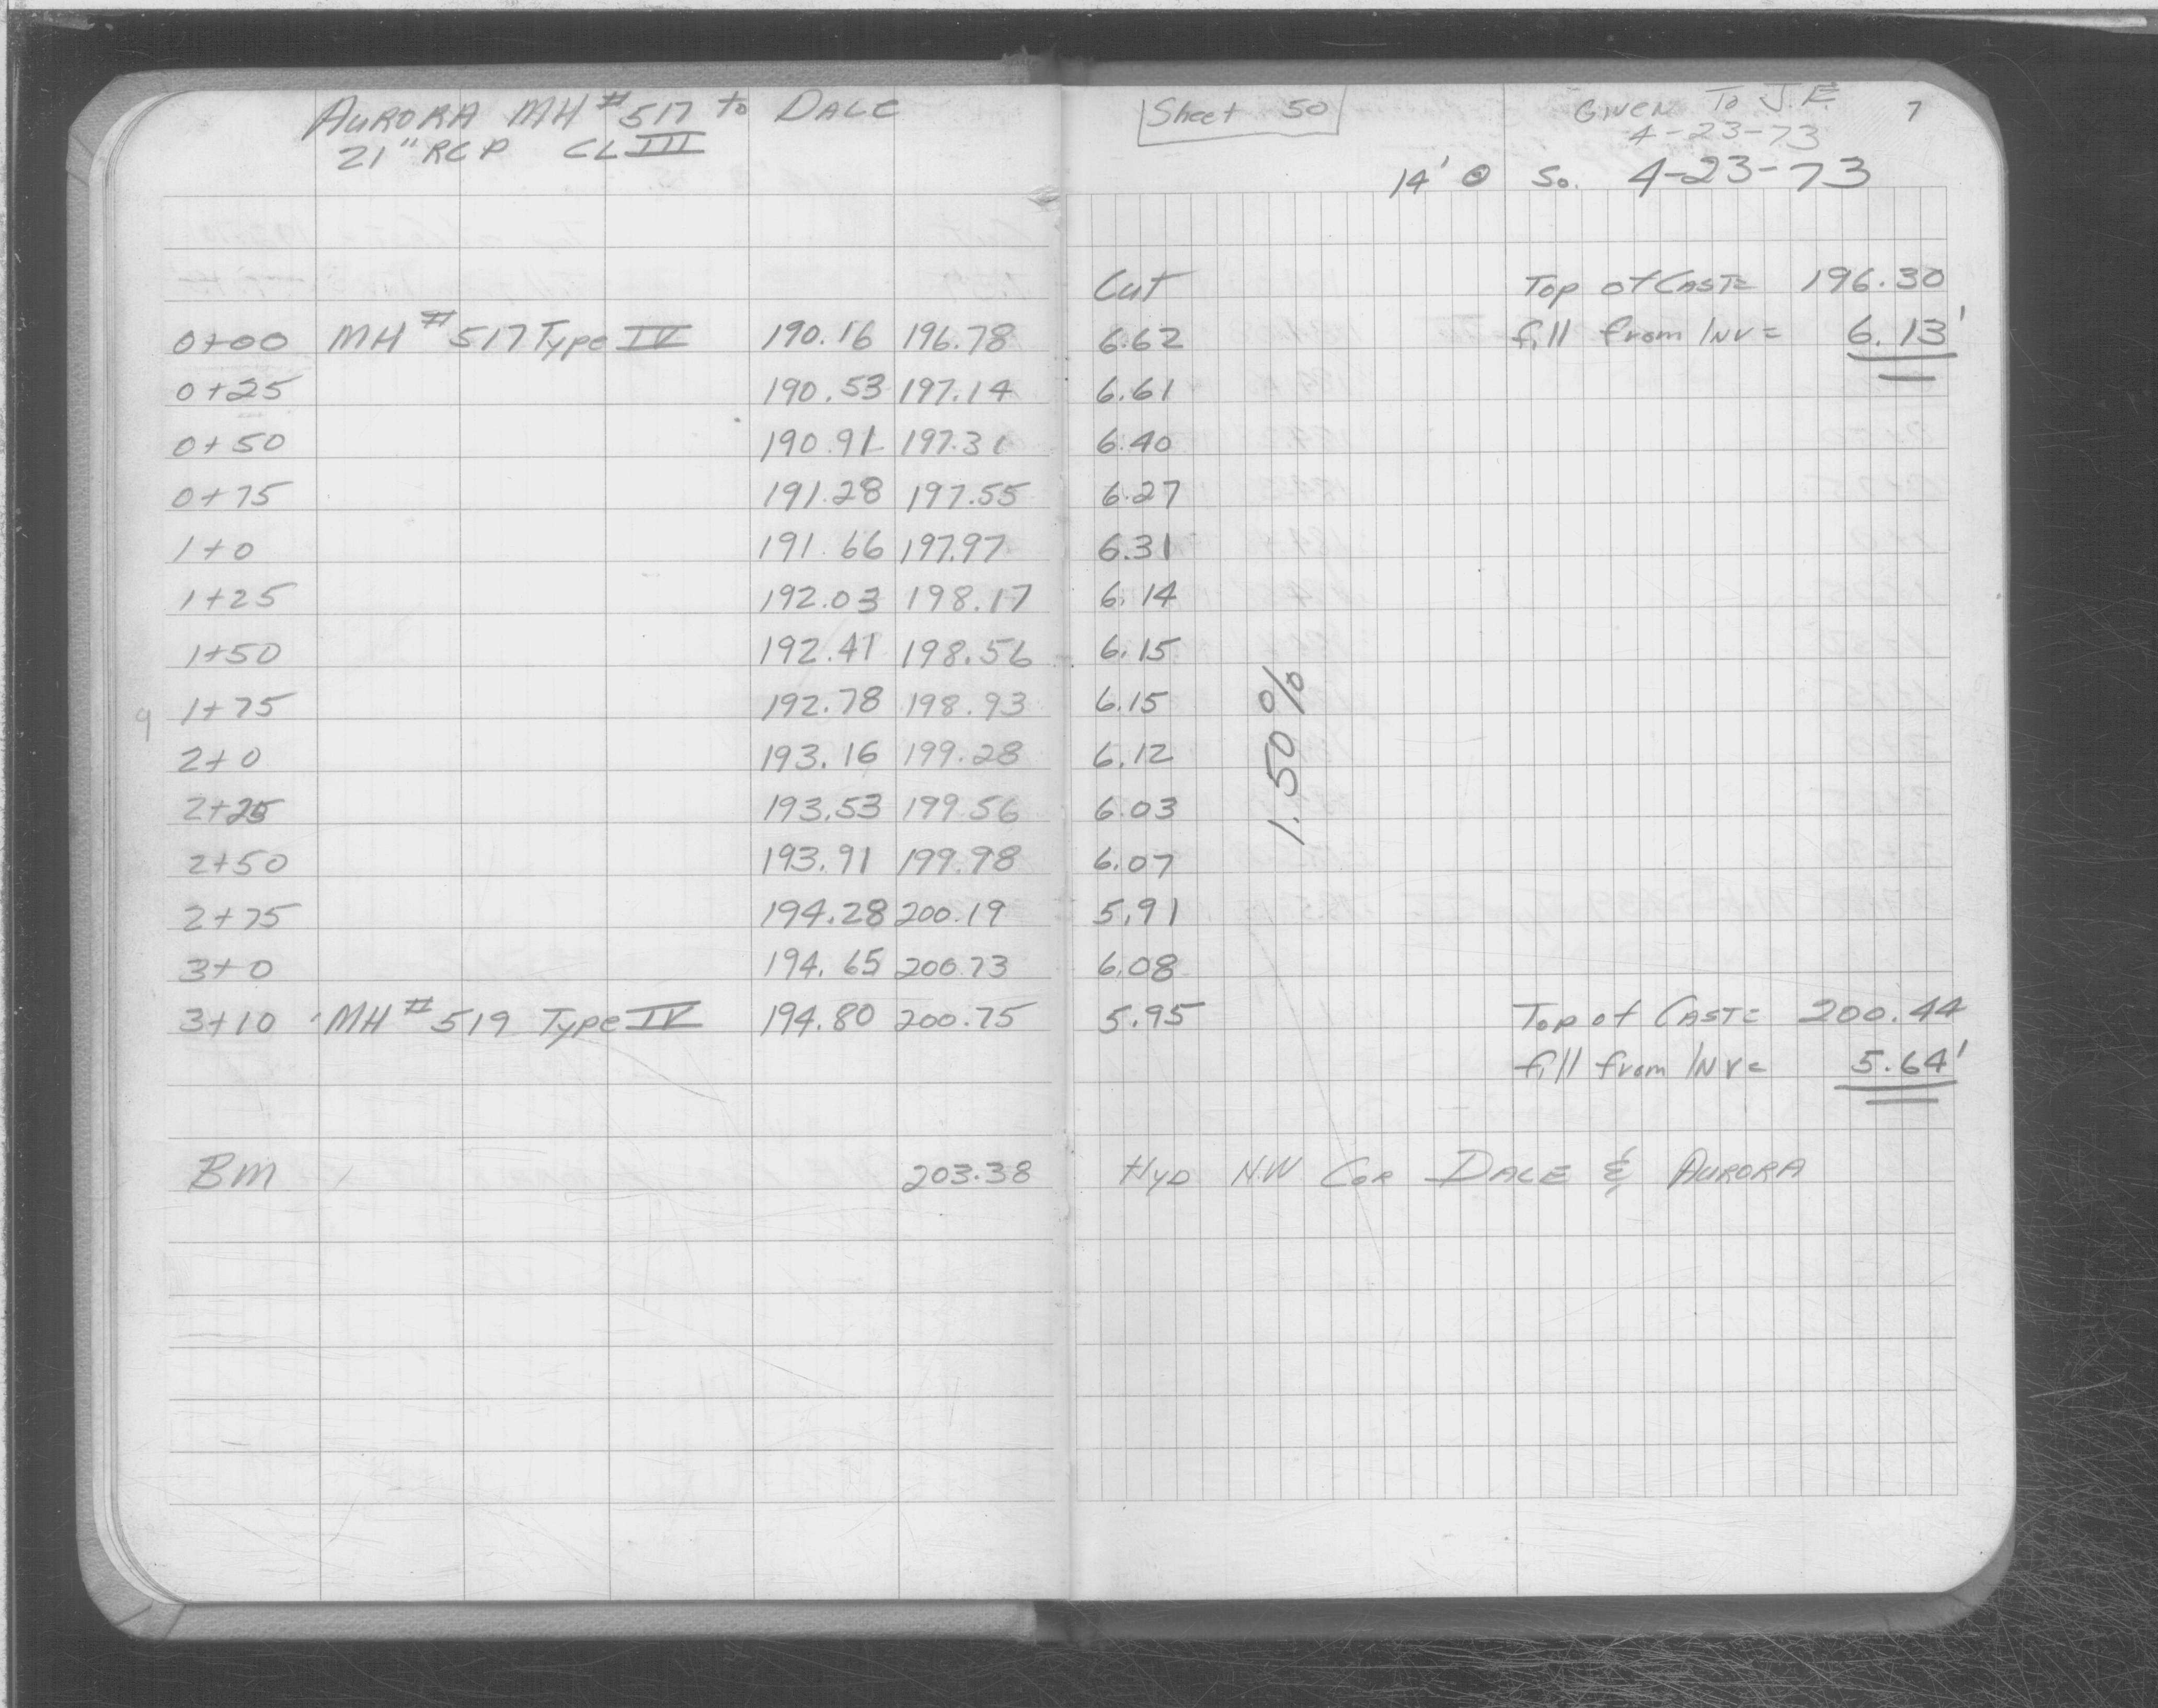 AURORA MH #517 to DALE
21" RCP CL III
Sheet 50
GIVEN TO J.E.
4-23-73
7
14' ⊙ So. 4-23-73
Cut
Top of CAST= 196.30
0+00 MH #517 Type IV 190.16 196.78 6.62
fill from INV= 6.13'
0+25 190.53 197.14 6.61
0+50 190.91 197.31 6.40
0+75 191.28 197.55 6.27
1+0 191.66 197.97 6.31
1+25 192.03 198.17 6.14
1+50 192.41 198.56 6.15
1+75 192.78 198.93 6.15
1.50%
9
2+0 193.16 199.28 6.12
2+25 193.53 199.56 6.03
2+50 193.91 199.98 6.07
2+75 194.28 200.19 5.91
3+0 194.65 200.73 6.08
3+10 MH #519 Type IV 194.80 200.75 5.95
Top of CAST= 200.44
fill from INV= 5.64'
BM 203.38 HYD N.W. COR DALE & AURORA